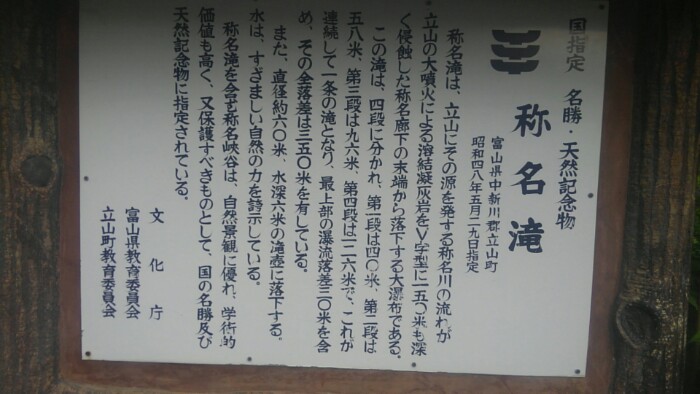 国指定 名勝・天然記念物
称名滝
富山県中新川郡立山町
昭和四八年五月二九日指定
称名滝は、立山にその源を発する称名川の流れが
立山の大噴火による溶結凝灰岩をV字型に一五〇米も深
く侵蝕した称名廊下の末端から落下する大瀑布である。
この滝は、四段に分かれ、第一段は四〇米、第二段は
五八米、第三段は九六米、第四段は一二六米で、これが
連続して一条の滝となり、最上部の瀑流落差三〇米を含
め、その全落差は三五〇米を有している。
また、直径約六〇米、水深六米の滝壺に落下する
水は、すざましい自然の力を誇示している。
称名滝を含む称名峡谷は、自然景観に優れ、学術的
価値も高く、又保護すべきものとして、国の名勝及び
天然記念物に指定されている。
文化庁
富山県教育委員会
立山町教育委員会